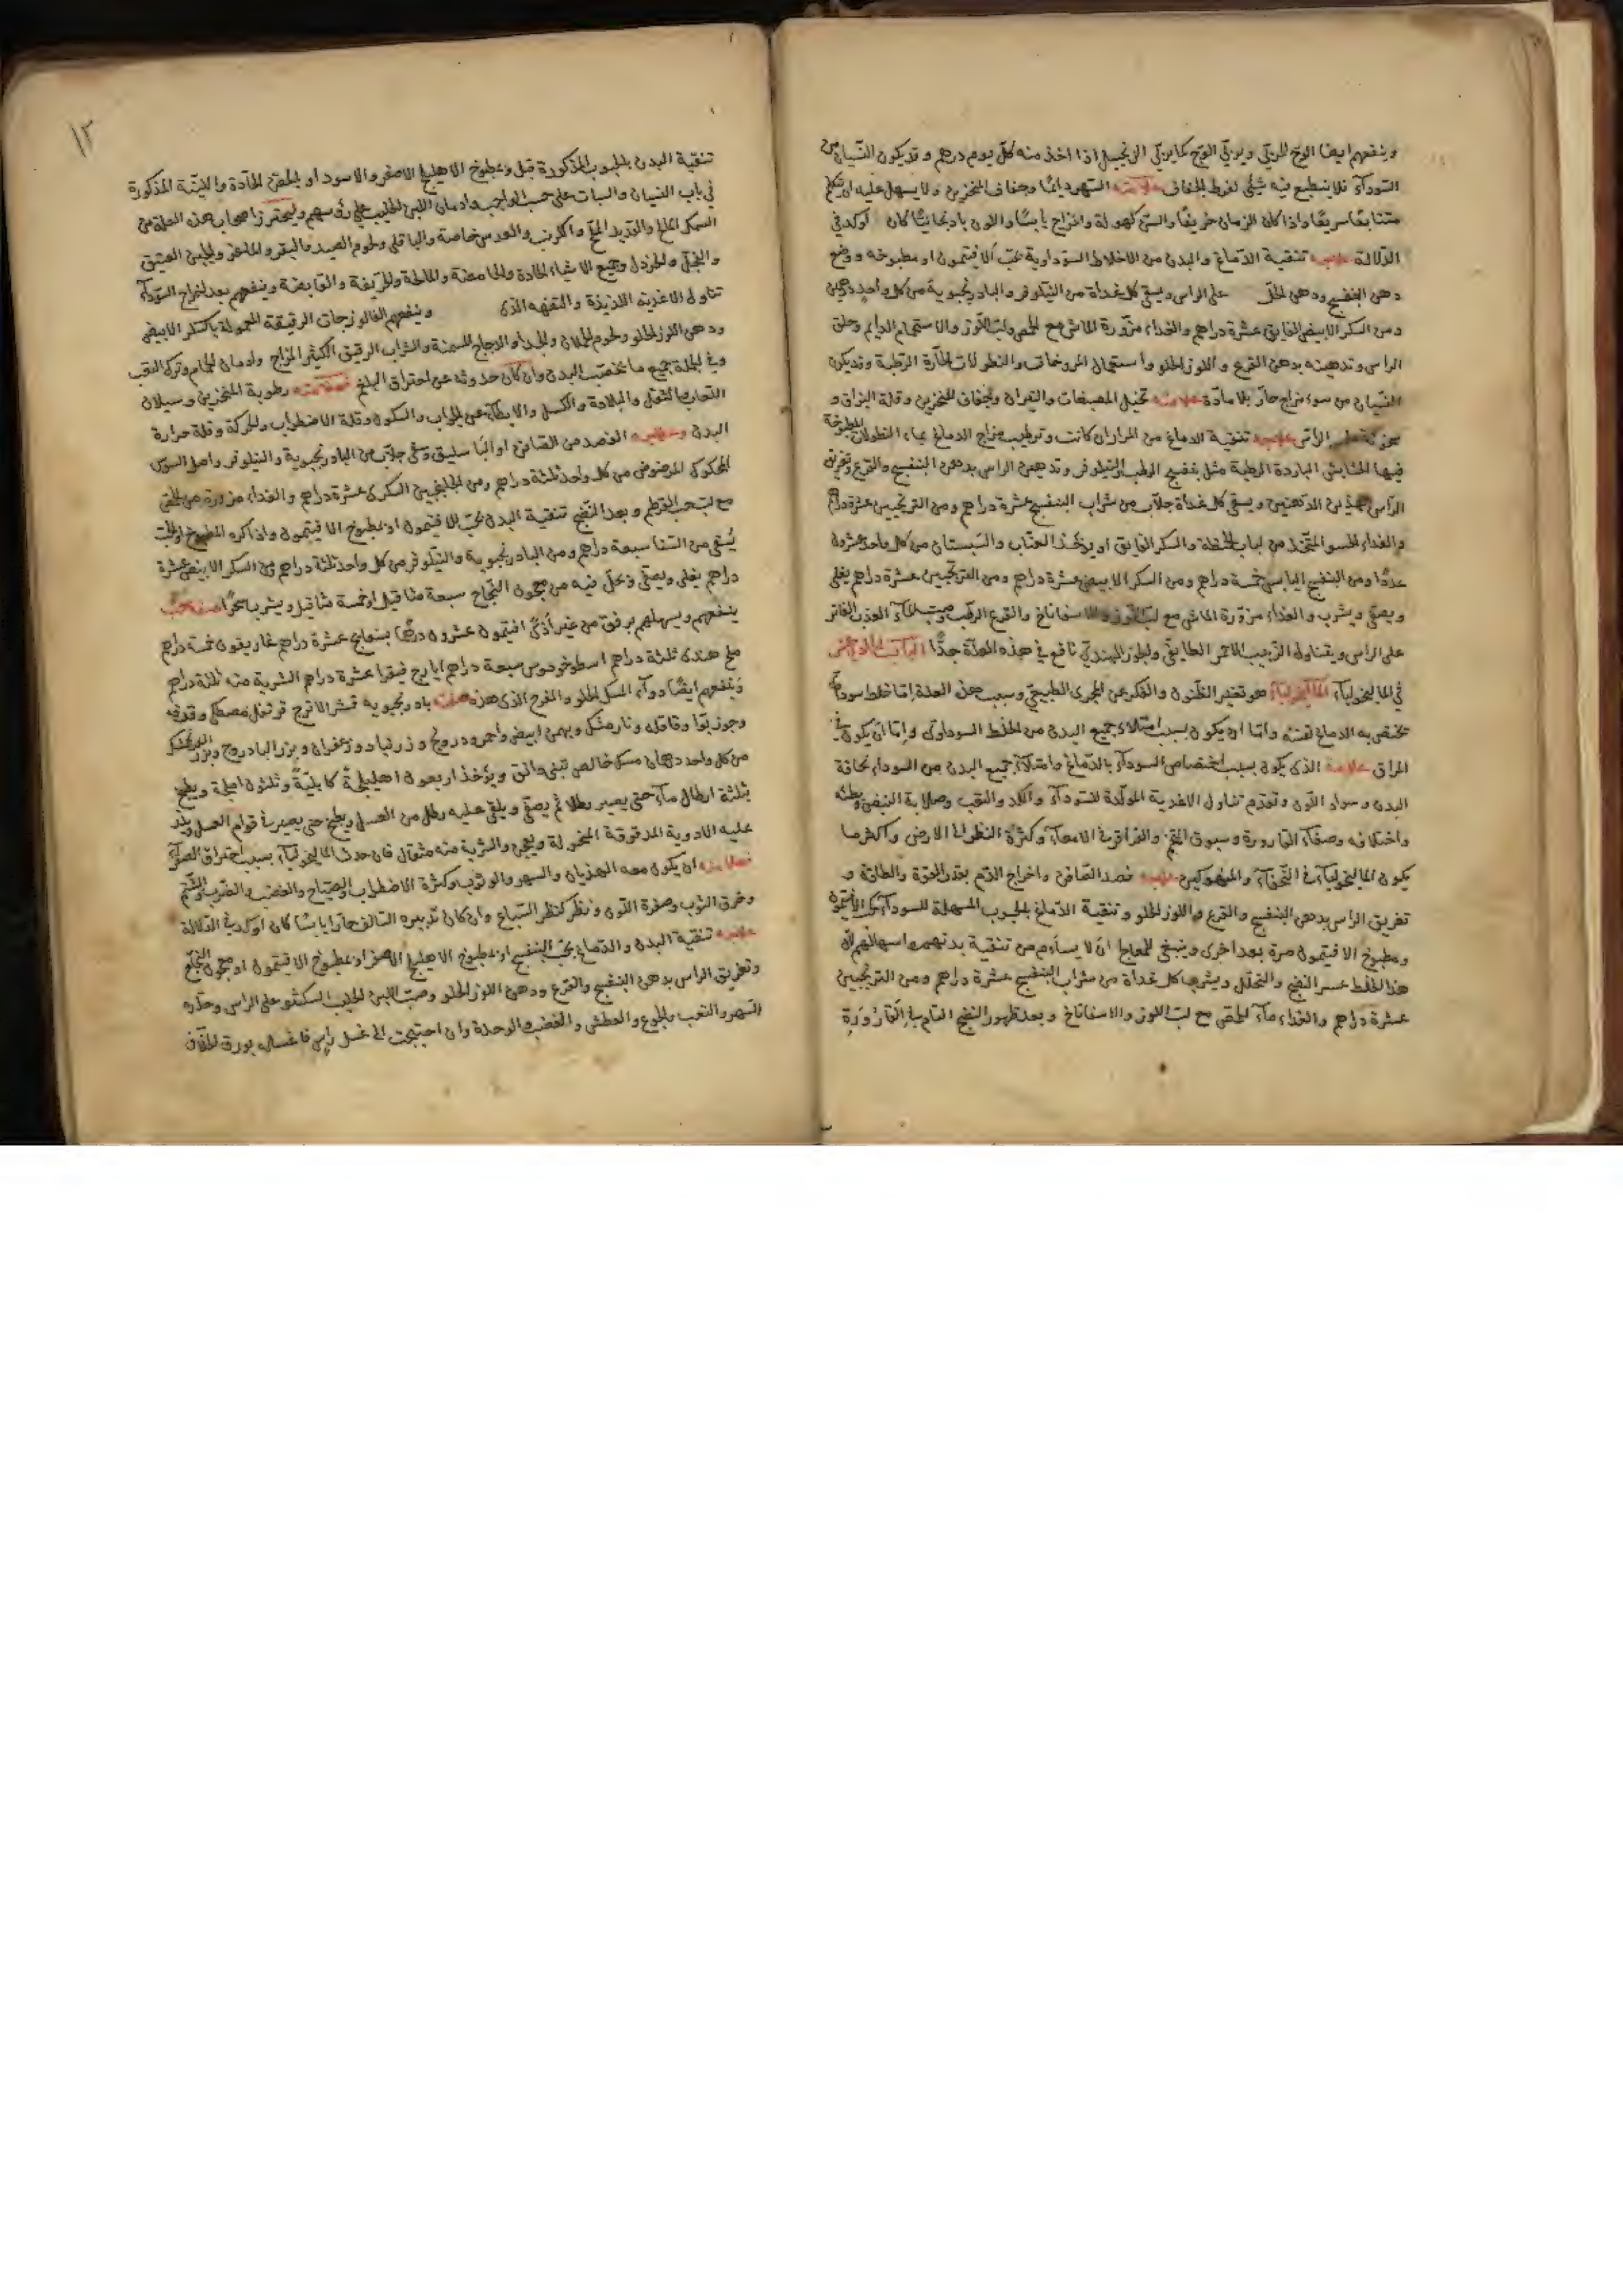 وينفعهم ايضا الوج المربى ويربى الوج كما يربى الزنجبيل اذا اخذ منه كل يوم درهم وقد يكون النسيان من
السوداء فلا ينطبع فيه شئ لفرط الجفاف علامته السهر دايما وجفاف المنخرين ولا يسهل عليه ان يتكلم
متتابعا سريعا واذا كان الزمان خريفا والسن كهولة والمزاج يابسا واللون باذنجانيا كان اوكد في
الدلالة علاجه تنقية الدماغ والبدن من الاخلاط السوداوية بحب الافتيمون او مطبوخه ووضع
دهن البنفسج ودهن الخل على الراس ويسقى كل غداة من النيلوفر والبادرنجبوية من كل واحد درهمين
ومن السكر الابيض الفايق عشرة دراهم والغذاء مزورة الماش مع الحمص ولب اللوز والاستحمام الدايم وحلق
الراس وتدهينه بدهن القرع واللوز الحلو واستعمال المروخات والنطولات الحارة الرطبة وقد يكون
النسيان من سوء مزاج حار بلا مادة علامته تخيل المصبغات والنيران وجفاف المنخرين وقلة البزاق و
علاجه تنقية الدماغ من المرار ان كانت وترطيب مزاج الدماغ بماء النطولات المطبوخة
فيها الحشايش الباردة الرطبة مثل بنفسج الرطب والنيلوفر وتدهين الراس بدهن البنفسج والقرع وتغريق
الراس بهذين الدهنين ويسقى كل غداة جلاب من شراب البنفسج عشرة دراهم ومن الترنجبين عشرة دراهم
والغذاء الحسو المتخذ من لباب الحنطة والسكر الفايق او يؤخذ العناب والسبستان من كل واحد عشرون
عددا ومن البنفسج اليابس خمسة دراهم ومن السكر الابيض عشرة دراهم ومن الترنجبين عشرة دراهم يغلى
ويصفى ويشرب والغذاء مزورة الماش مع لب اللوز والاسفاناخ والقرع الرطب وصب الماء العذب الفاتر
على الراس ويتناول الزبيب الاحمر الطايفي والجوز الهندي نافع في هذه العلة جدا الباب الحادي عشر
في الماليخولياء الماليخولياء هو تغير الظنون والفكر عن المجرى الطبيعي وسبب هذه العلة اما خلط سوداوي
تختص به الدماغ نفسه واما ان يكون بسبب امتلاء جميع البدن من الخلط السوداوي واما ان يكون في
المراق علامة الذي يكون بسبب اختصاص السوداء بالدماغ وامتلاء جميع البدن من السوداء نحافة
البدن وسواد اللون وتقدم تناول الاغذية المولدة للسوداء والكد والتعب وصلابة النبض وبطئه
واختلافه وصفاء القارورة وسبوق الغم والقراقر في الامعاء وكثرة النظر الى الارض واكثر ما
يكون الماليخولياء في النحفاء والمنهوكين علاجه فصد الصافن واخراج الدم بقدر القوة والطاقة و
تغريق الراس بدهن البنفسج والقرع واللوز الحلو وتنقية الدماغ بالحبوب المسهلة للسوداء كحب الافتيمون
ومطبوخ الافتيمون مرة بعد اخرى وينبغي للمعالج ان لا يسأم من تنقية بدنهم واسهالهم لان
هذا الخلط عسر النضج والتحلل ويشربها كل غداة من شراب البنفسج عشرة دراهم ومن الترنجبين
عشرة دراهم والغذاء ماء الحمص مع لب اللوز والاسفاناخ وبعد ظهور النضج التام في القارورة
١٢
تنقية البدن بالحبوب المذكورة قبل وبمطبوخ الاهليلج الاصفر والاسود او بالحقن الحادة واللينة المذكورة
في باب النسيان والسبات على حسب الواجب وادمان اللبن الحليب على رؤسهم وليحترز اصحاب هذه العلة من
السمك المالح والقديد المملح والكرنب والعدس خاصة والباقلى ولحوم الصيد والبقر والماعز والجبن العتيق
والفجل والخردل وجميع الاشياء الحادة والحامضة والمالحة والحريفة والقابضة وينفعهم بعد اخراج السوداء
تناول الاغذية اللذيذة والتفهه الذي وينفعهم الفالوزجات الرقيقة المعمولة بالسكر الابيض
ودهن اللوز الحلو ولحوم الحملان والجداء والدجاج المسمنة والشراب الرقيق الكثير المزاج وادمان الحمام وترك التعب
وفي الجملة جميع ما يخصب البدن وان كان حدوثه عن احتراق البلغم فعلامته رطوبة المنخرين وسيلان
اللعاب والثقل والبلادة والكسل والابطاء عن الجواب والسكون وقلة الاضطراب والحركة وقلة حرارة
البدن وعلاجه الفصد من الصافن او الباسليق وسقى جلاب من البادرنجبوية والنيلوفر واصل السوس
المحكوك المرضوض من كل واحد ثلثة دراهم ومن الجلنجبين السكري عشرة دراهم والغذاء مزورة من الحمص
مع لب حب القرطم وبعد النضج تنقية البدن بحب الافتيمون او بمطبوخ الافتيمون واذا كره المطبوخ والحب
يسقى من السنا سبعة دراهم ومن البادرنجبوية والنيلوفر من كل واحد ثلثة دراهم ومن السكر الابيض عشرة
دراهم يغلى ويصفى ويحل فيه من معجون النجاح سبعة مثاقيل او خمسة مثاقيل ويشربه سحرا صفة حب
ينفعهم ويسهلهم برفق من غير اذى افتيمون عشرون درهما بسفايج عشرة دراهم غاريقون خمسة دراهم
ملح هندي ثلثة دراهم اسطوخودوس سبعة دراهم ايارج فيقرا عشرة دراهم الشربة منه ثلثة دراهم
وينفعهم ايضا دواء المسك الحلو والمفرح الذي هذه صفته بادرنجبويه قشر الاترج قرنفل مصطكى وقرفه
وجوز بوا وقاقله ونارمشك وبهمن ابيض واحمر ودرونج وزرنباد وزعفران وبزر البادروج وبزر الفرنجمشك
من كل واحد درهمان مسك خالص تبتي دانق ويؤخذ اربعون اهليلجة كابلية وثلثون املجة ويطبخ
بثلثة ارطال ماء حتى يصير رطلا ثم يصفى ويلقى عليه رطل من العسل ويطبخ حتى يصير في قوام العسل ويذر
عليه الادوية المدقوقة المنخولة ويعجن والشربة منه مثقال فان حدث الماليخولياء بسبب احتراق الصفراء
فعلامته ان يكون معه الهذيان والسهر والوثوب وكثرة الاضطراب والصياح والغضب والضرب والشتم
وخرق الثوب وصفرة اللون ونظر كنظر السباع وان كان تدبيره السالف حارا يابسا كان اوكد في الدلالة
علاجه تنقية البدن والدماغ بحب البنفسج او بمطبوخ الاهليلج الاصفر او بمطبوخ الافتيمون او معجون النجاح
وتغريق الراس بدهن البنفسج والقرع ودهن اللوز الحلو وصب اللبن الحليب على الراس وحذره
السهر والتعب والجوع والعطش والغضب والوحدة وان احتيجت الى غسل راس فاغسله بورق الخلاف